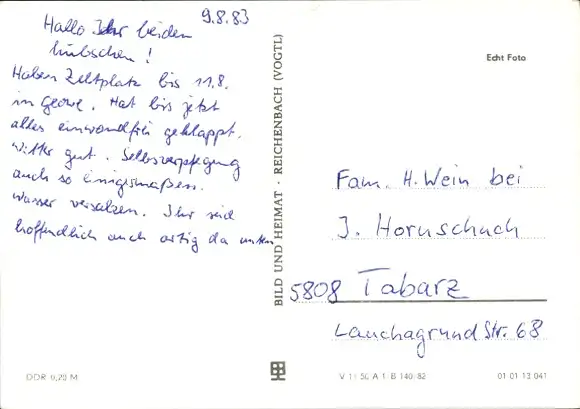 9.8.83
Hallo Ihr beiden
hübschen!
Haben Zeltplatz bis 11.8.
in Hat bis jetzt
alles einwandfrei geklappt.
Wetter gut. Selbsverpflegung
auch so einigermaßen.
Wasser versalzen. Ihr seid
hoffendlich auch artig da unten
BILD UND HEIMAT · REICHENBACH (VOGTL)
Echt Foto
Fam. H. Wein bei
J. Hornschuch
5808 Tabarz
Lauchagrund Str. 68
DDR 0,20 M
V 11 50 A 1/B 140/82
01 01 13 041